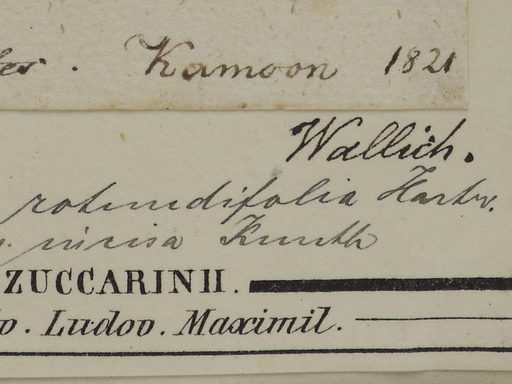 Kamoon 1821
Wallich.
rotundifolia Hartw.
incisa Kunth
ZUCCARINII.
. Ludov. Maximil.